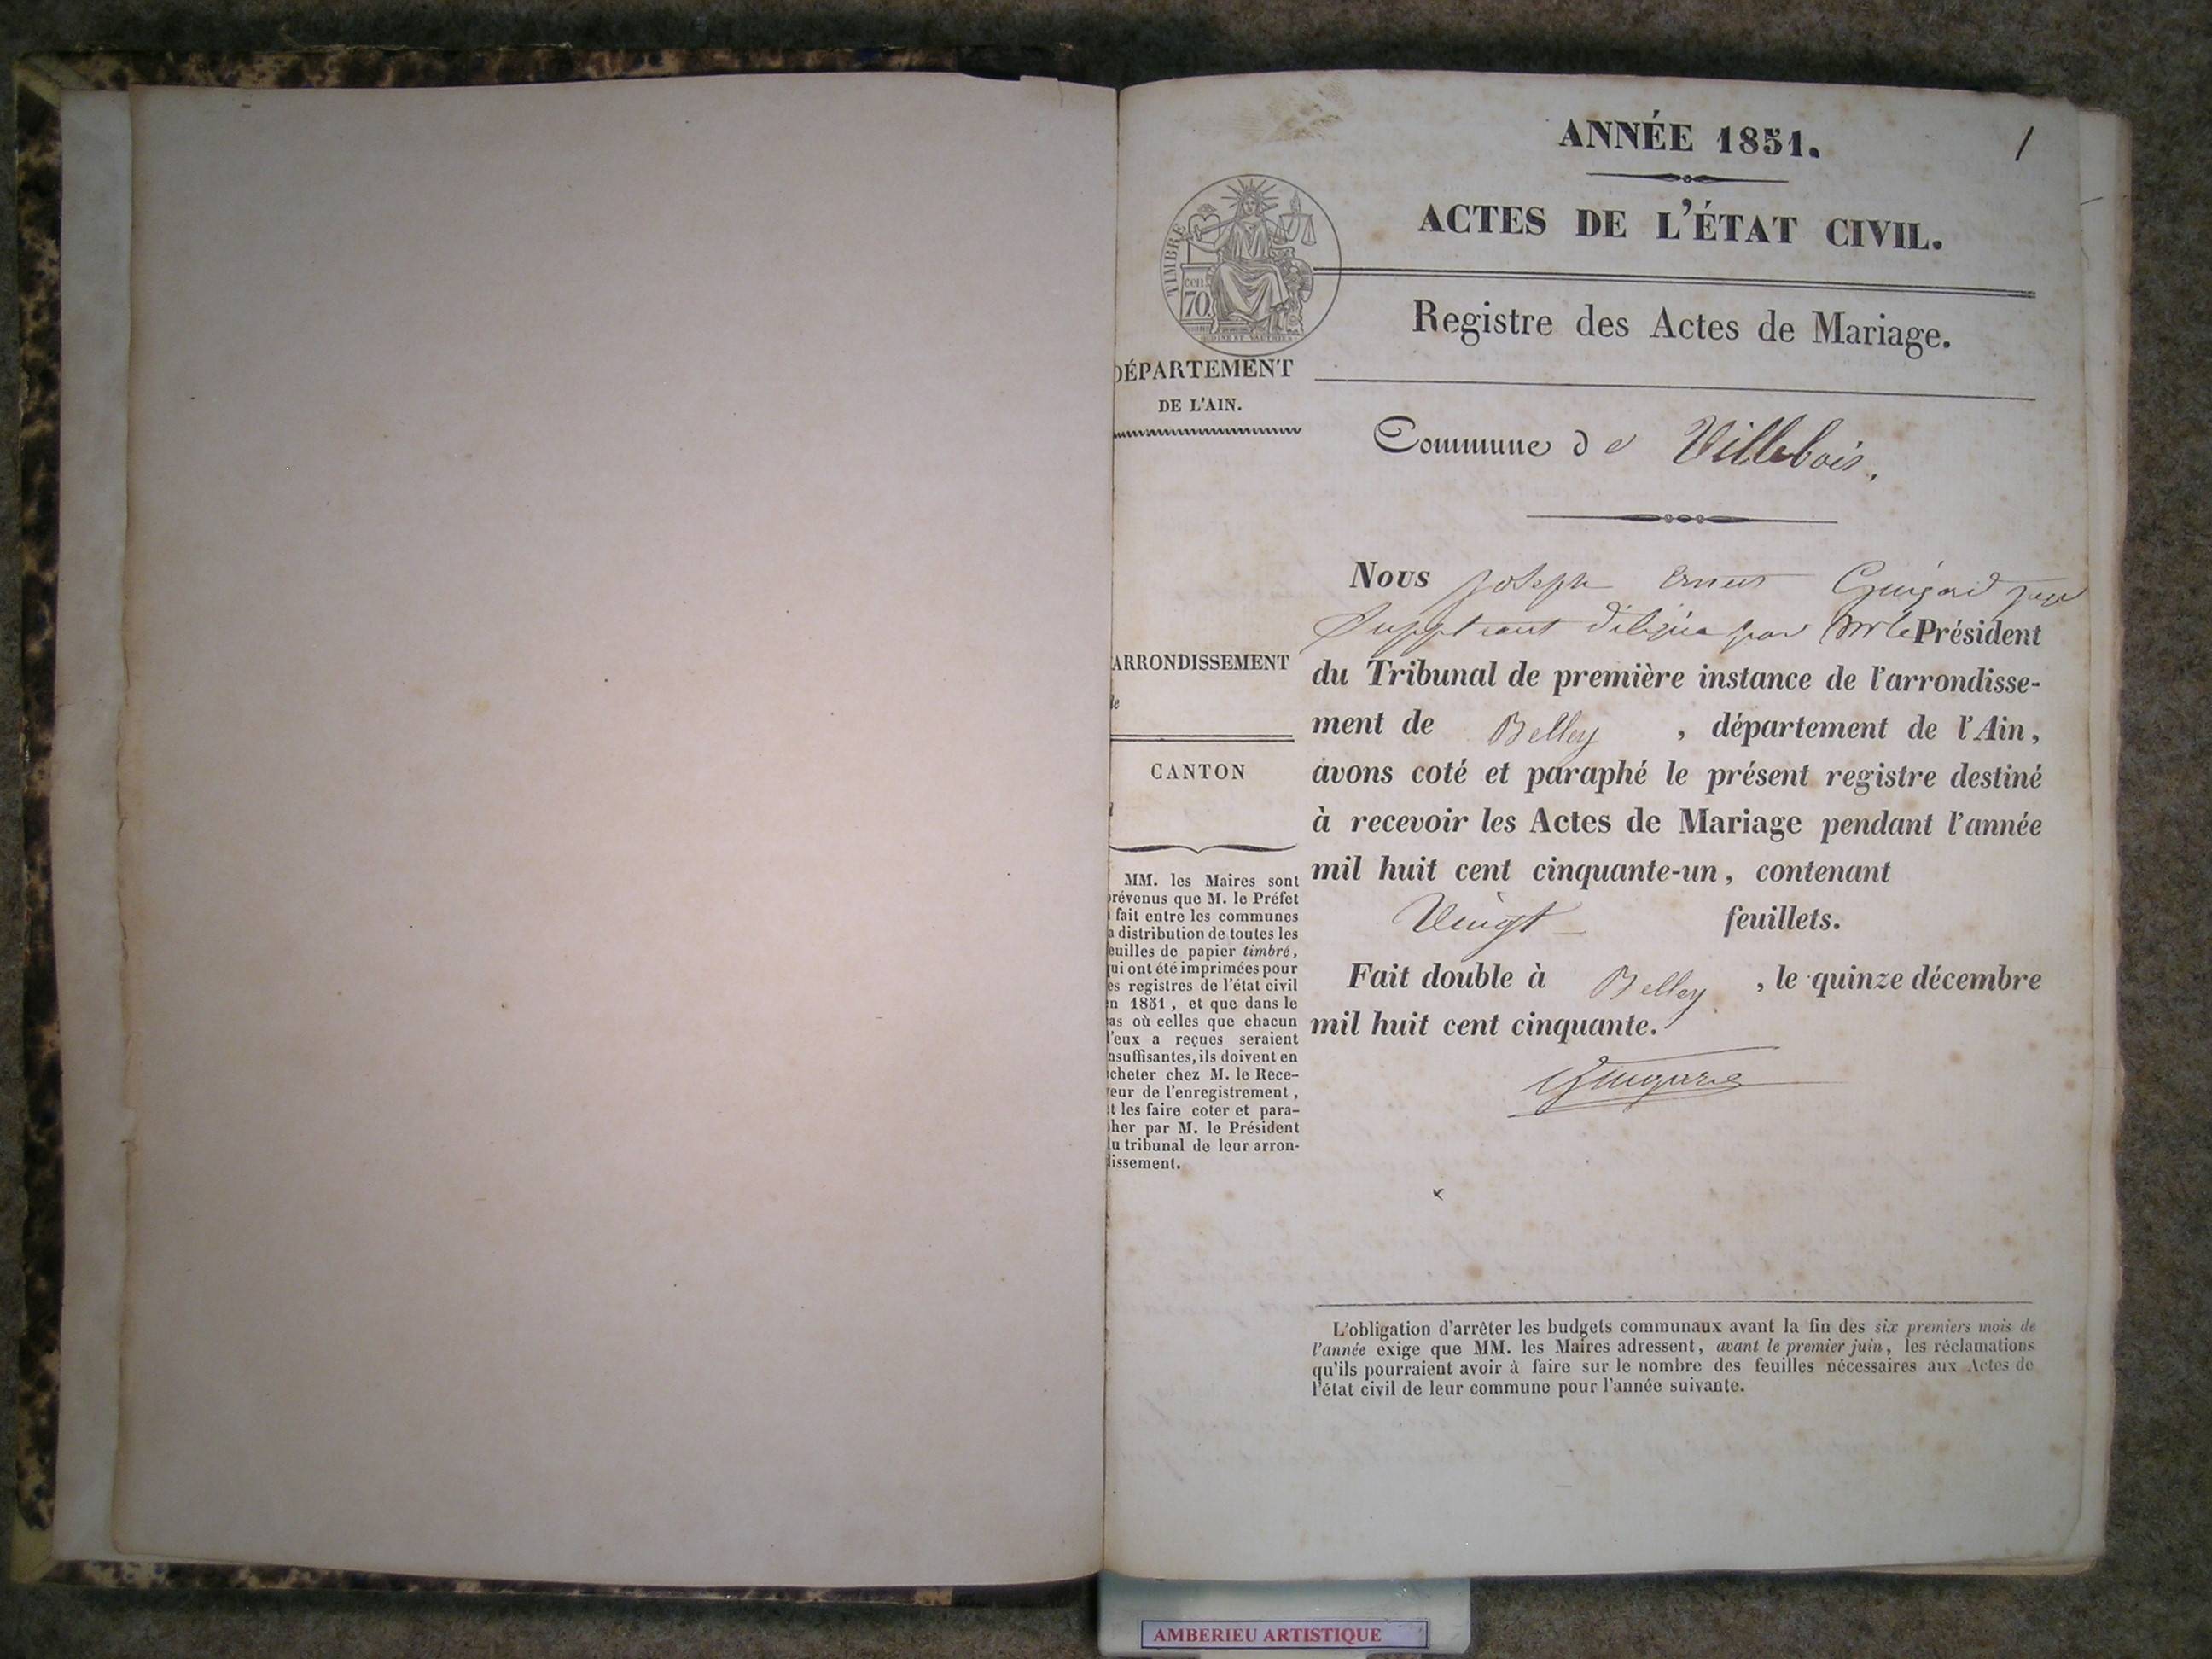 ANNÉE 1851.
1
ACTES DE L'ÉTAT CIVIL.
TIMBRE
cen.
70.
Registre des Actes de Mariage.
DÉPARTEMENT
DE L'AIN.
Commune de Villebois.
Nous Joseph Ernest Guigard juge
Suppléant délégué par Mr le Président
du Tribunal de première instance de l'arrondisse-
ment de Belley, département de l'Ain,
avons coté et paraphé le présent registre destiné
à recevoir les Actes de Mariage pendant l'année
mil huit cent cinquante-un, contenant
Vingt feuillets.
Fait double à Belley, le quinze décembre
mil huit cent cinquante.
ARRONDISSEMENT
de
CANTON
MM. les Maires sont
prévenus que M. le Préfet
a fait entre les communes
la distribution de toutes les
feuilles de papier timbré,
qui ont été imprimées pour
les registres de l'état civil
en 1851, et que dans le
cas où celles que chacun
d'eux a reçues seraient
insuffisantes, ils doivent en
acheter chez M. le Rece-
veur de l'enregistrement,
et les faire coter et para-
pher par M. le Président
du tribunal de leur arron-
dissement.
L'obligation d'arrêter les budgets communaux avant la fin des six premiers mois de
l'année exige que MM. les Maires adressent, avant le premier juin, les réclamations
qu'ils pourraient avoir à faire sur le nombre des feuilles nécessaires aux Actes de
l'état civil de leur commune pour l'année suivante.
AMBERIEU ARTISTIQUE